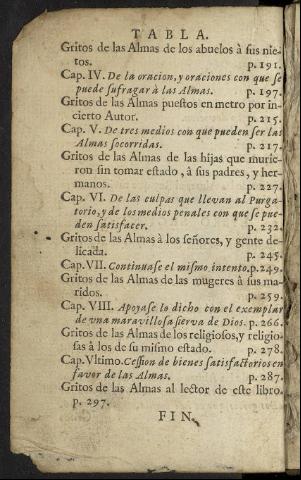 TABLA.
Gritos de las Almas de los abuelos à sus nie-
tos. p.191.
Cap. IV. De la oracion, y oraciones con que se
puede sufragar à las Almas. p.197.
Gritos de las Almas puestos en metro por in-
cierto Autor. p.215.
Cap. V. De tres medios con que pueden ser las
Almas socorridas. p.217.
Gritos de las Almas de las hijas que murie-
ron sin tomar estado, à sus padres, y her-
manos. p.227.
Cap. VI. De las culpas que llevan al Purga-
torio, y de los medios penales con que se pue-
den satisfacer. p.232.
Gritos de las Almas à los señores, y gente de-
licada. p.245.
Cap. VII. Continuase el mismo intento. p.249.
Gritos de las Almas de las mugeres à sus ma-
ridos. p.259.
Cap. VIII. Apoyase lo dicho con el exemplar
de vna maravillosa sierva de Dios. p.266.
Gritos de las Almas de los religiosos, y religio-
sas à los de su mismo estado. p.278.
Cap. Vltimo. Cession de bienes satisfactorios en
favor de las Almas. p.287.
Gritos de las Almas al lector de este libro.
p.297.
FIN.